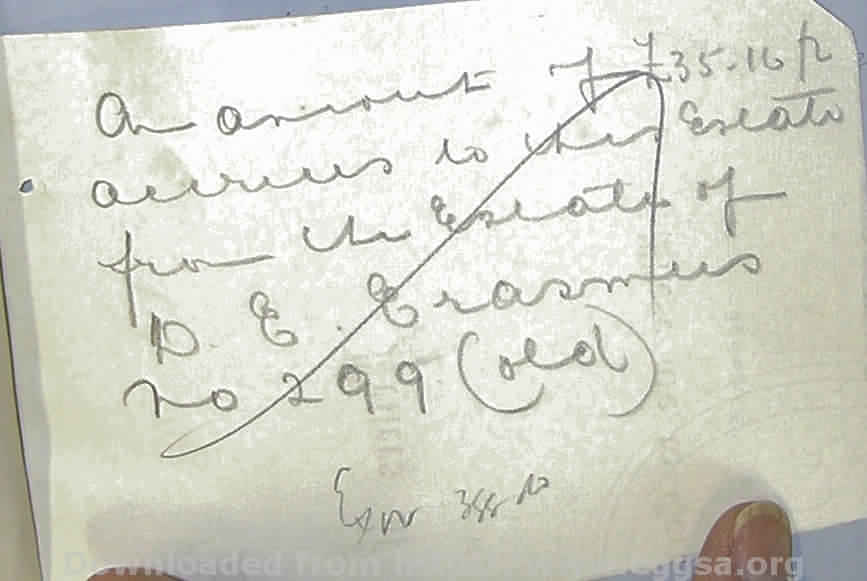 An amount of £35.16/2
accrues to this Estate
from the Estate of
D. E. Erasmus
no 299 (old)
Exor
Downloaded from eggsa.org